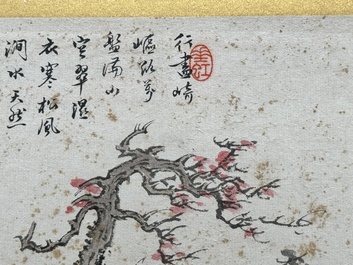 行盡崎
嶇路萬
盤滿山
空翠濕
衣寒松風
澗水天然